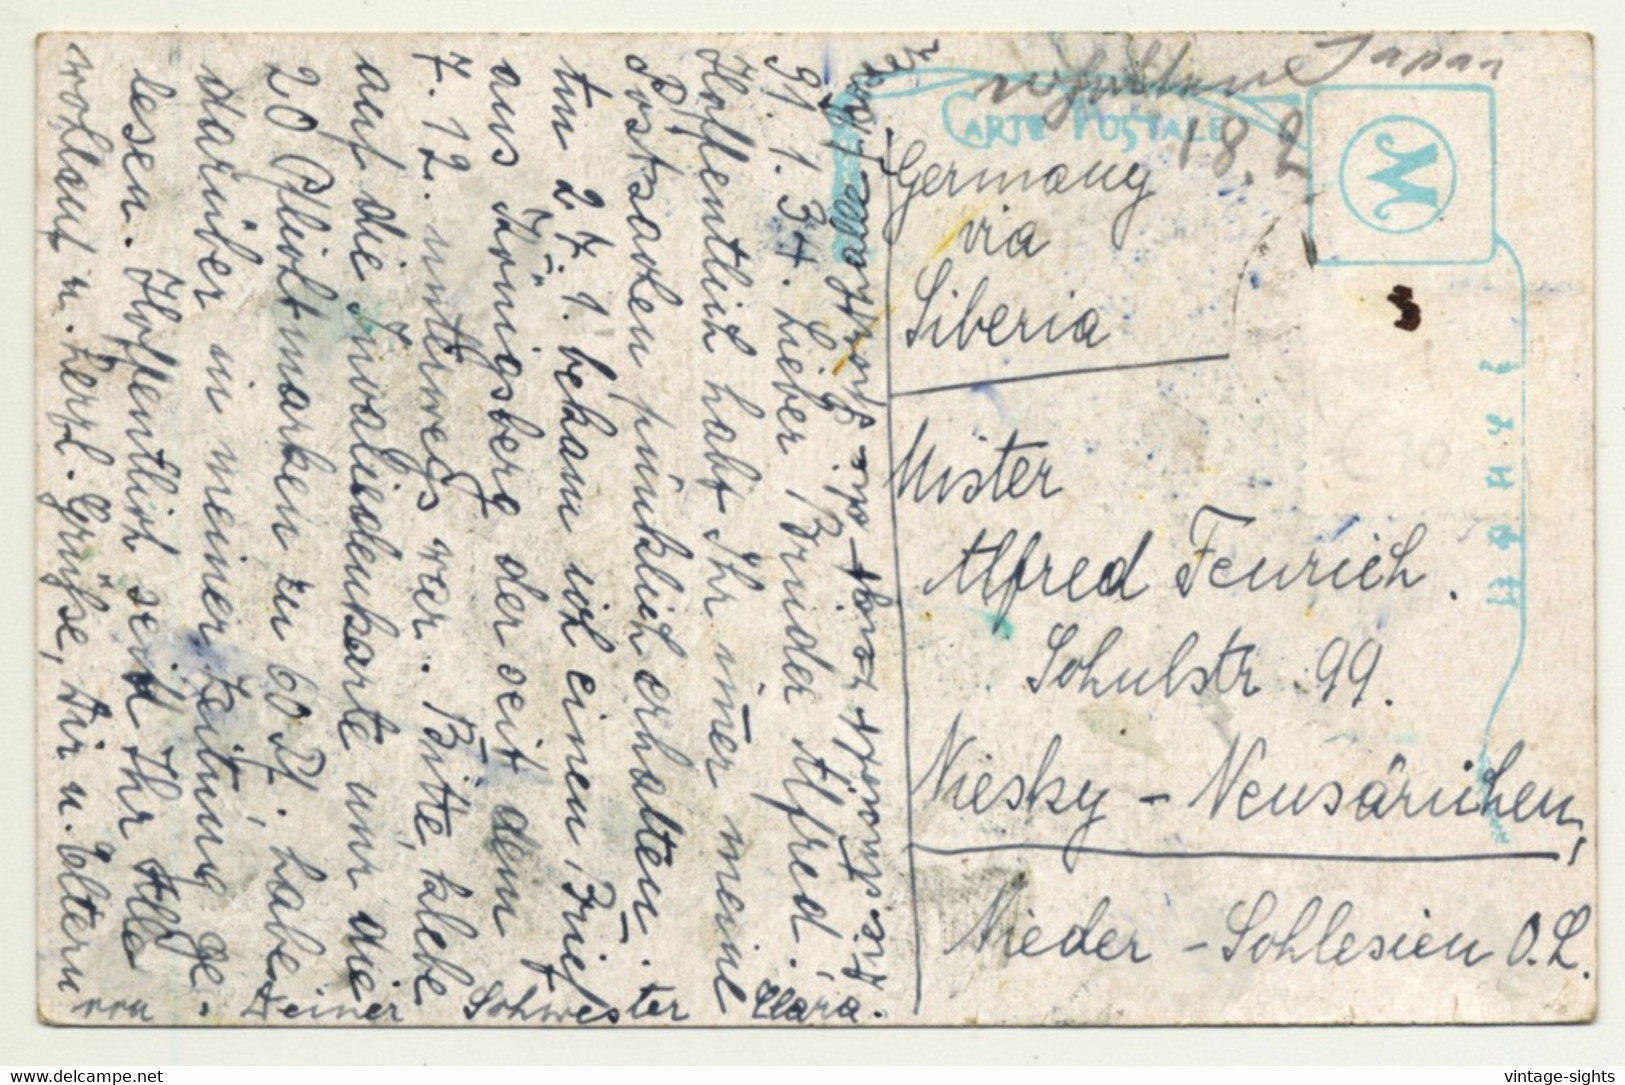 CARTE POSTALE
Japan
18. 2
Germany
via
Siberia
Mister
Alfred Feurich.
Schulstr. 99.
Niesky - Neusärichen,
Nieder - Schlesien O. L.
M
Die Aufschrift
alle
91. 1. 34. Lieber Bruder Alfred.
Hoffentlich habt Ihr im̄er meine
Postsachen pünklich erhalten.
Am 27. 1. bekam ich einen Brief
aus Königsberg der seit dem
7. 12. unterwegs war. Bitte, klebe
auf die Invaliedenkarte nur die
20 Pflichtmarken zu 60 Pf., habe
darüber in meiner Zeitung ge
lesen. Hoffentlich seid Ihr Alle
wohlauf u. herzl. Grüße, Dir u. Eltern
von Deiner Schwester Klara.
vintage-sights